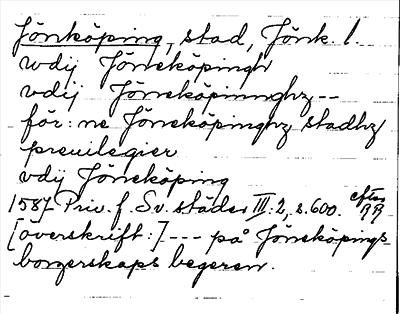 Jönköping, stad, Jönk. l.
wdij Jöneköpingh
vdij Jöneköpinnghz --
för:ne Jöneköpinghz stadhz
preuilegier
vdij Jöneköping
1587 Priv. f. Sv. städer III:2, s. 600. efter RR
[överskrift:] --- på Jöneköpings-
borgerskaps begeren.